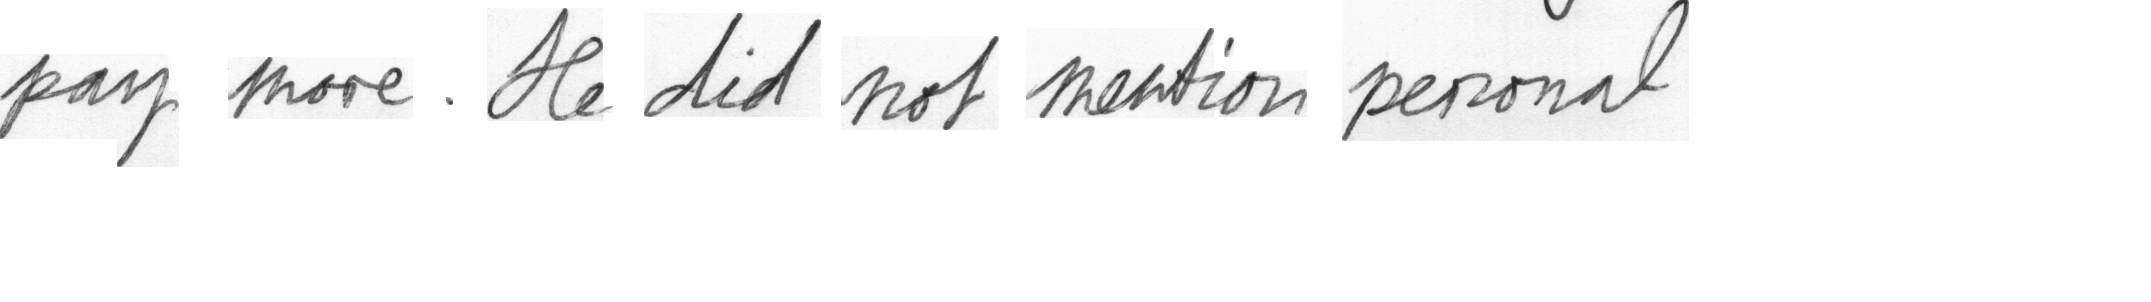 pay more . He did not mention personal